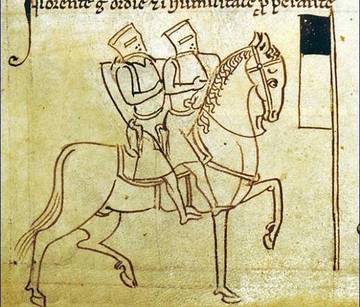 florente g ordīe ⁊ ī humilitate ꝓperante